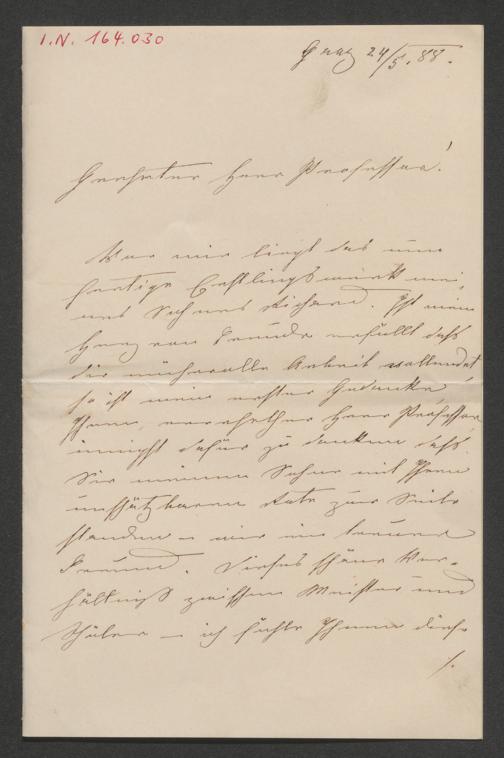 I.N. 164.030
Graz 24/5. 88.
Geehrter Herr Professor!
Vor mir liegt das nun
fertige Erstlingswerk mei-
nes Sohnes Richard. Ist mein
Herz von Freude erfüllt daß
die mühevolle Arbeit vollendet
so ist mein erster Gedanke
Ihnen verehrter Herr Professor
innigst dafür zu danken daß
Sie meinem Sohne mit Ihrem
unschätzbaren Rate zur Seite
standen – wie ein treuer
Freund. Dieses schöne Ver-
hältniß zwischen Meister und
Schüler – ich fühle Ihnen
/.